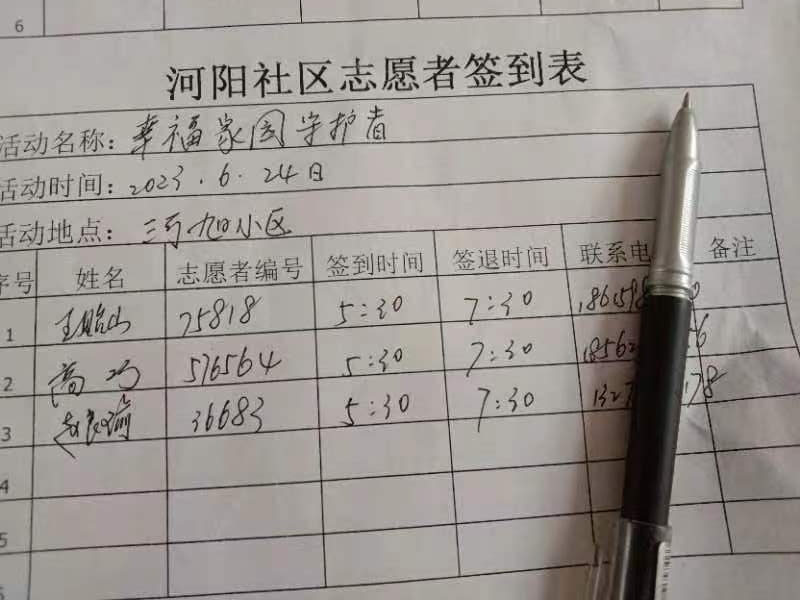 6
河阳社区志愿者签到表
活动名称：幸福家园守护者
活动时间：2023.6.24日
活动地点：三万旭小区
序号 姓名 志愿者编号 签到时间 签退时间 联系电 备注
1 75818 5:30 7:30
2 高巧 576564 5:30 7:30
3 36683 5:30 7:30
4
5